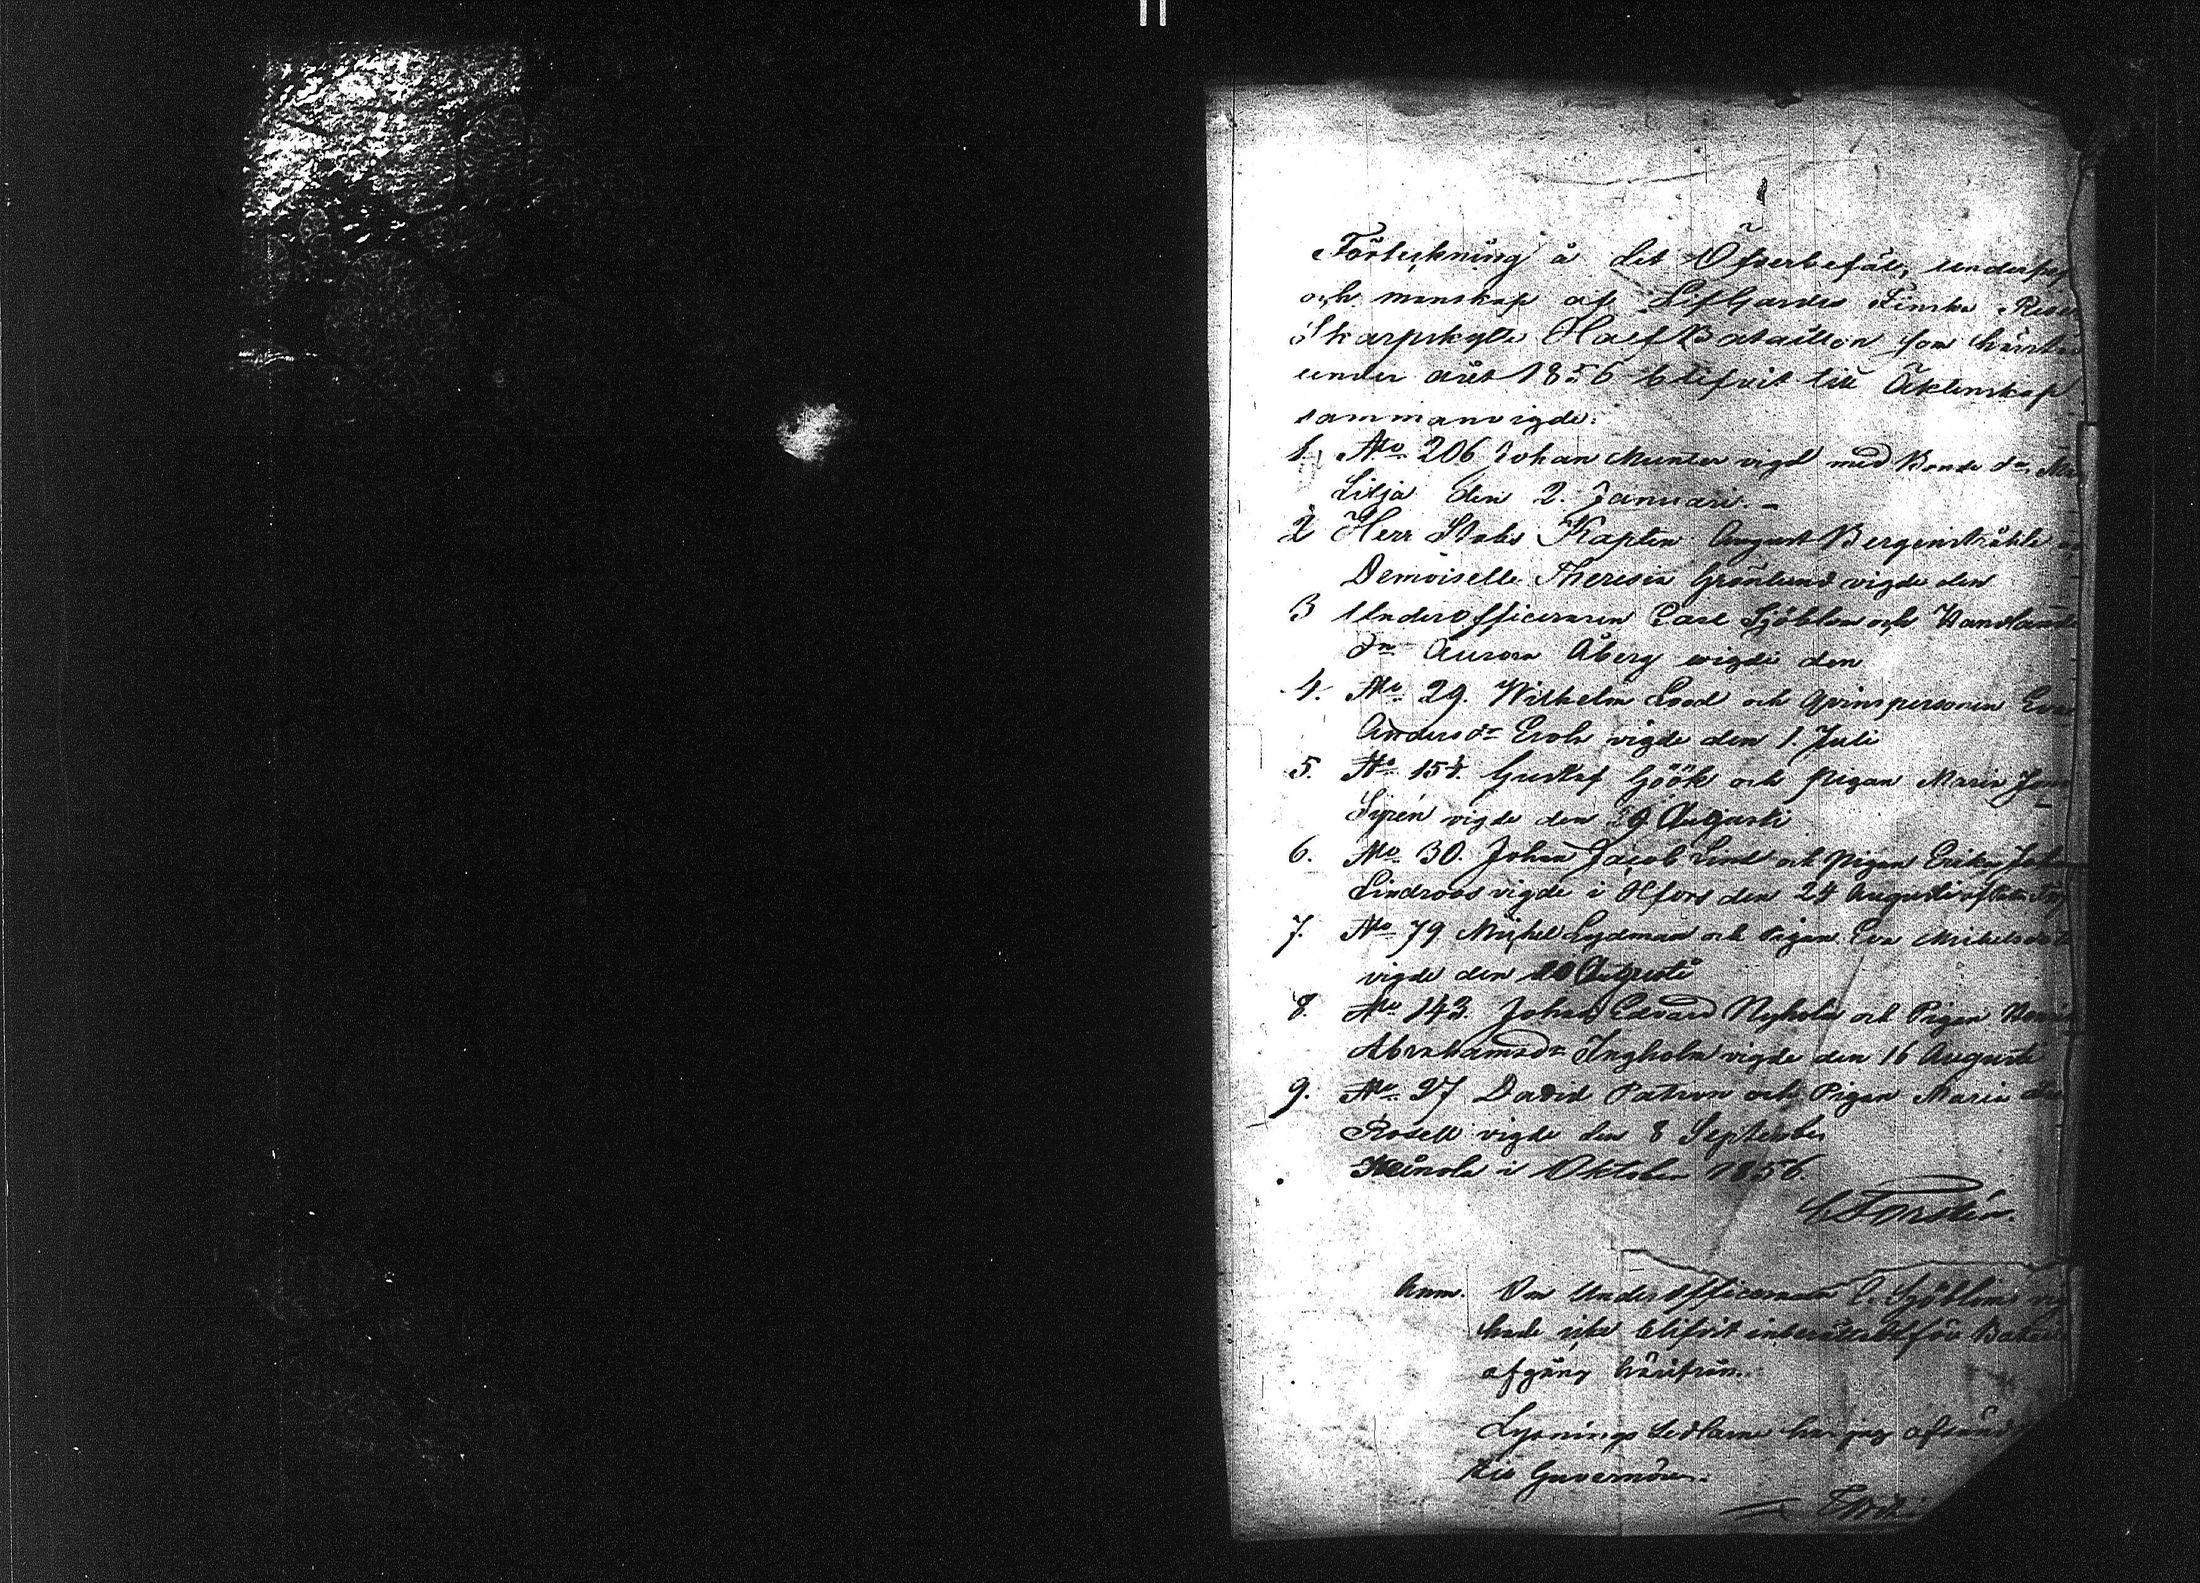 Förteckning å det Öfverbefäl, underbef
och manskap af LifGardes Finska Rese
Skarpskytte Half Bataillon som härstä
under året 1856 blifvit till Äktenskap
sammanvigde:
1. No 206 Johan Munter vigd med Bonde dr
Lilja den 2. Januari. -
2 Herr Stabs Kapten August Bergenstråhle
Demoiselle Theresia Grönlund vigde den
3 Underofficeraren Carl Sjöblom och Handlande
dr Aurora Åberg vigde den
4. No 29. Wilhelm Lood och Qvinspersonen Eva
Andersdr vigde den 1. Juli
5. No 154. Gustaf Göök och Pigan Maria
Syrén vigde den 29 Augusti
6. No 30. Johan Jacob Lind och Pigan Erika Joh
Lindroos vigde i Hfors den 24 Augusti af
7. No 79 Mickel Lydman och Pigan Eva Mickelsdr
vigde den 20 Augusti
8. No 143. Johan Edvard Nyholm och Pigan
Abrahamsdr Ingholm vigde den 16 Augusti
9. No 27 David Patron och Pigan Maria
Rosell vigde den 8 September
Heinola i Oktober 1856.
Forstén.
Anm. Om Underofficeraren C. Sjöbloms vig
hade icke blifvit inberättadt för
afgång härifrån.
Lysnings Sedlarne har jag afsänd
till Guvernören.